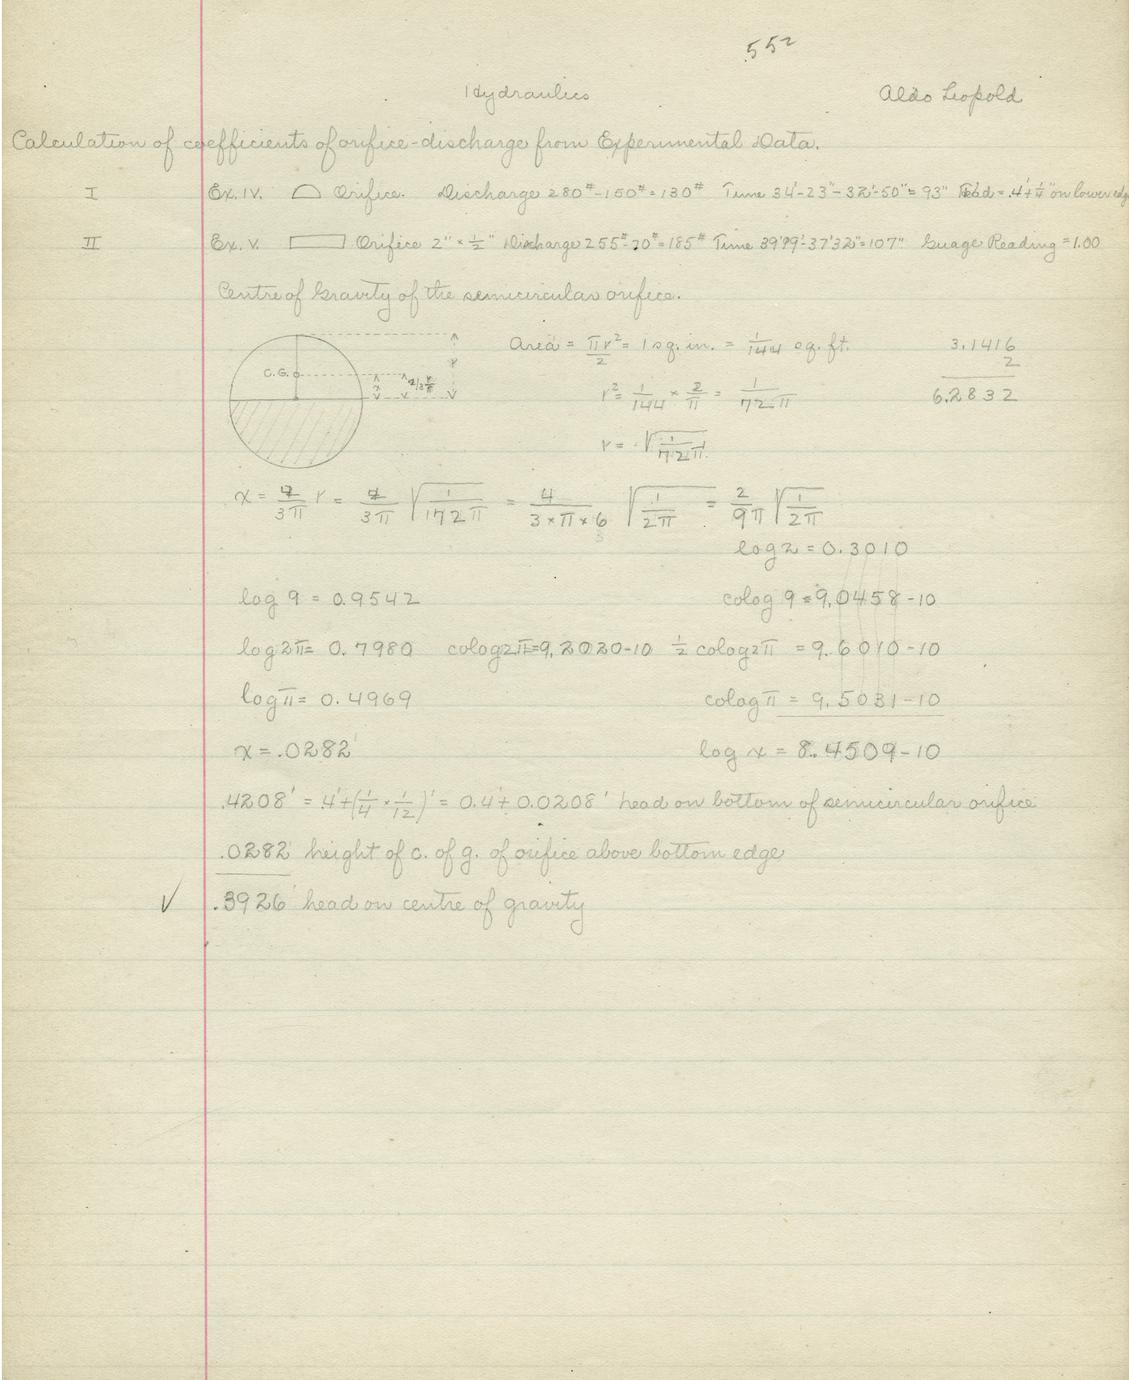 552
Hydraulics Aldo Leopold
Calculation of coefficients of orifice-discharge from Experimental Data.
I Ex. IV. Orifice. Discharge 280#-150#=130# Time 34'-23"-32'-50"=93" Head=.4'+¼" on lower edge
II Ex. V. Orifice 2"×½" Discharge 255#-70#=185# Time 39'19"-37'32"=107" Guage Reading=1.00
Centre of Gravity of the semicircular orifice.
Area = πr²/2 = 1 sq. in. = 1/144 sq. ft. 3.1416
C.G. x r 2
r² = 1/144 × 2/π = 1/72π 6.2832
r = √1/72π
x = 4/3π r = 4/3π √1/72π = 4/3×π×6 √1/2π = 2/9π √1/2π
log 2 = 0.3010
log 9 = 0.9542 colog 9 = 9.0458-10
log 2π = 0.7980 colog 2π = 9.2020-10 ½ colog 2π = 9.6010-10
log π = 0.4969 colog π = 9.5031-10
x = .0282' log x = 8.4509-10
.4208' = .4'+(¼×1/12)' = 0.4'+0.0208' head on bottom of semicircular orifice
.0282' height of c. of g. of orifice above bottom edge
✓ .3926' head on centre of gravity